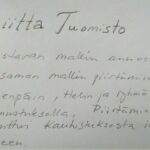 iitta Tuomisto
stavan mallin annos
saman mallin piirtämis
enpäin, Helin ja ryhmä
nnatuksella, Piirtämin
nttus kauhistuksesta i
een.